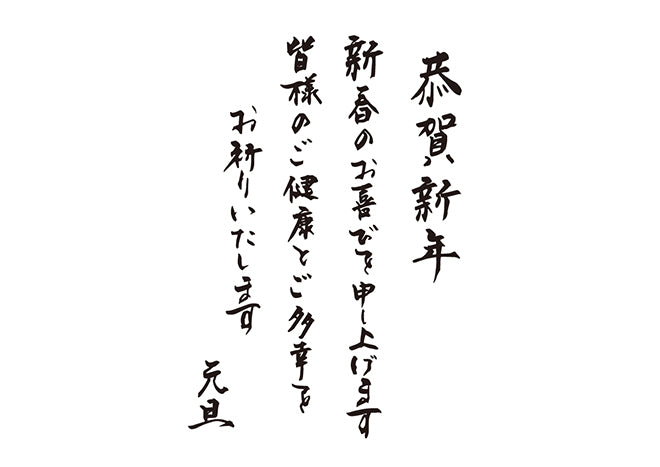 恭賀新年
新春のお喜びを申し上げます
皆様のご健康とご多幸を
お祈りいたします
元旦